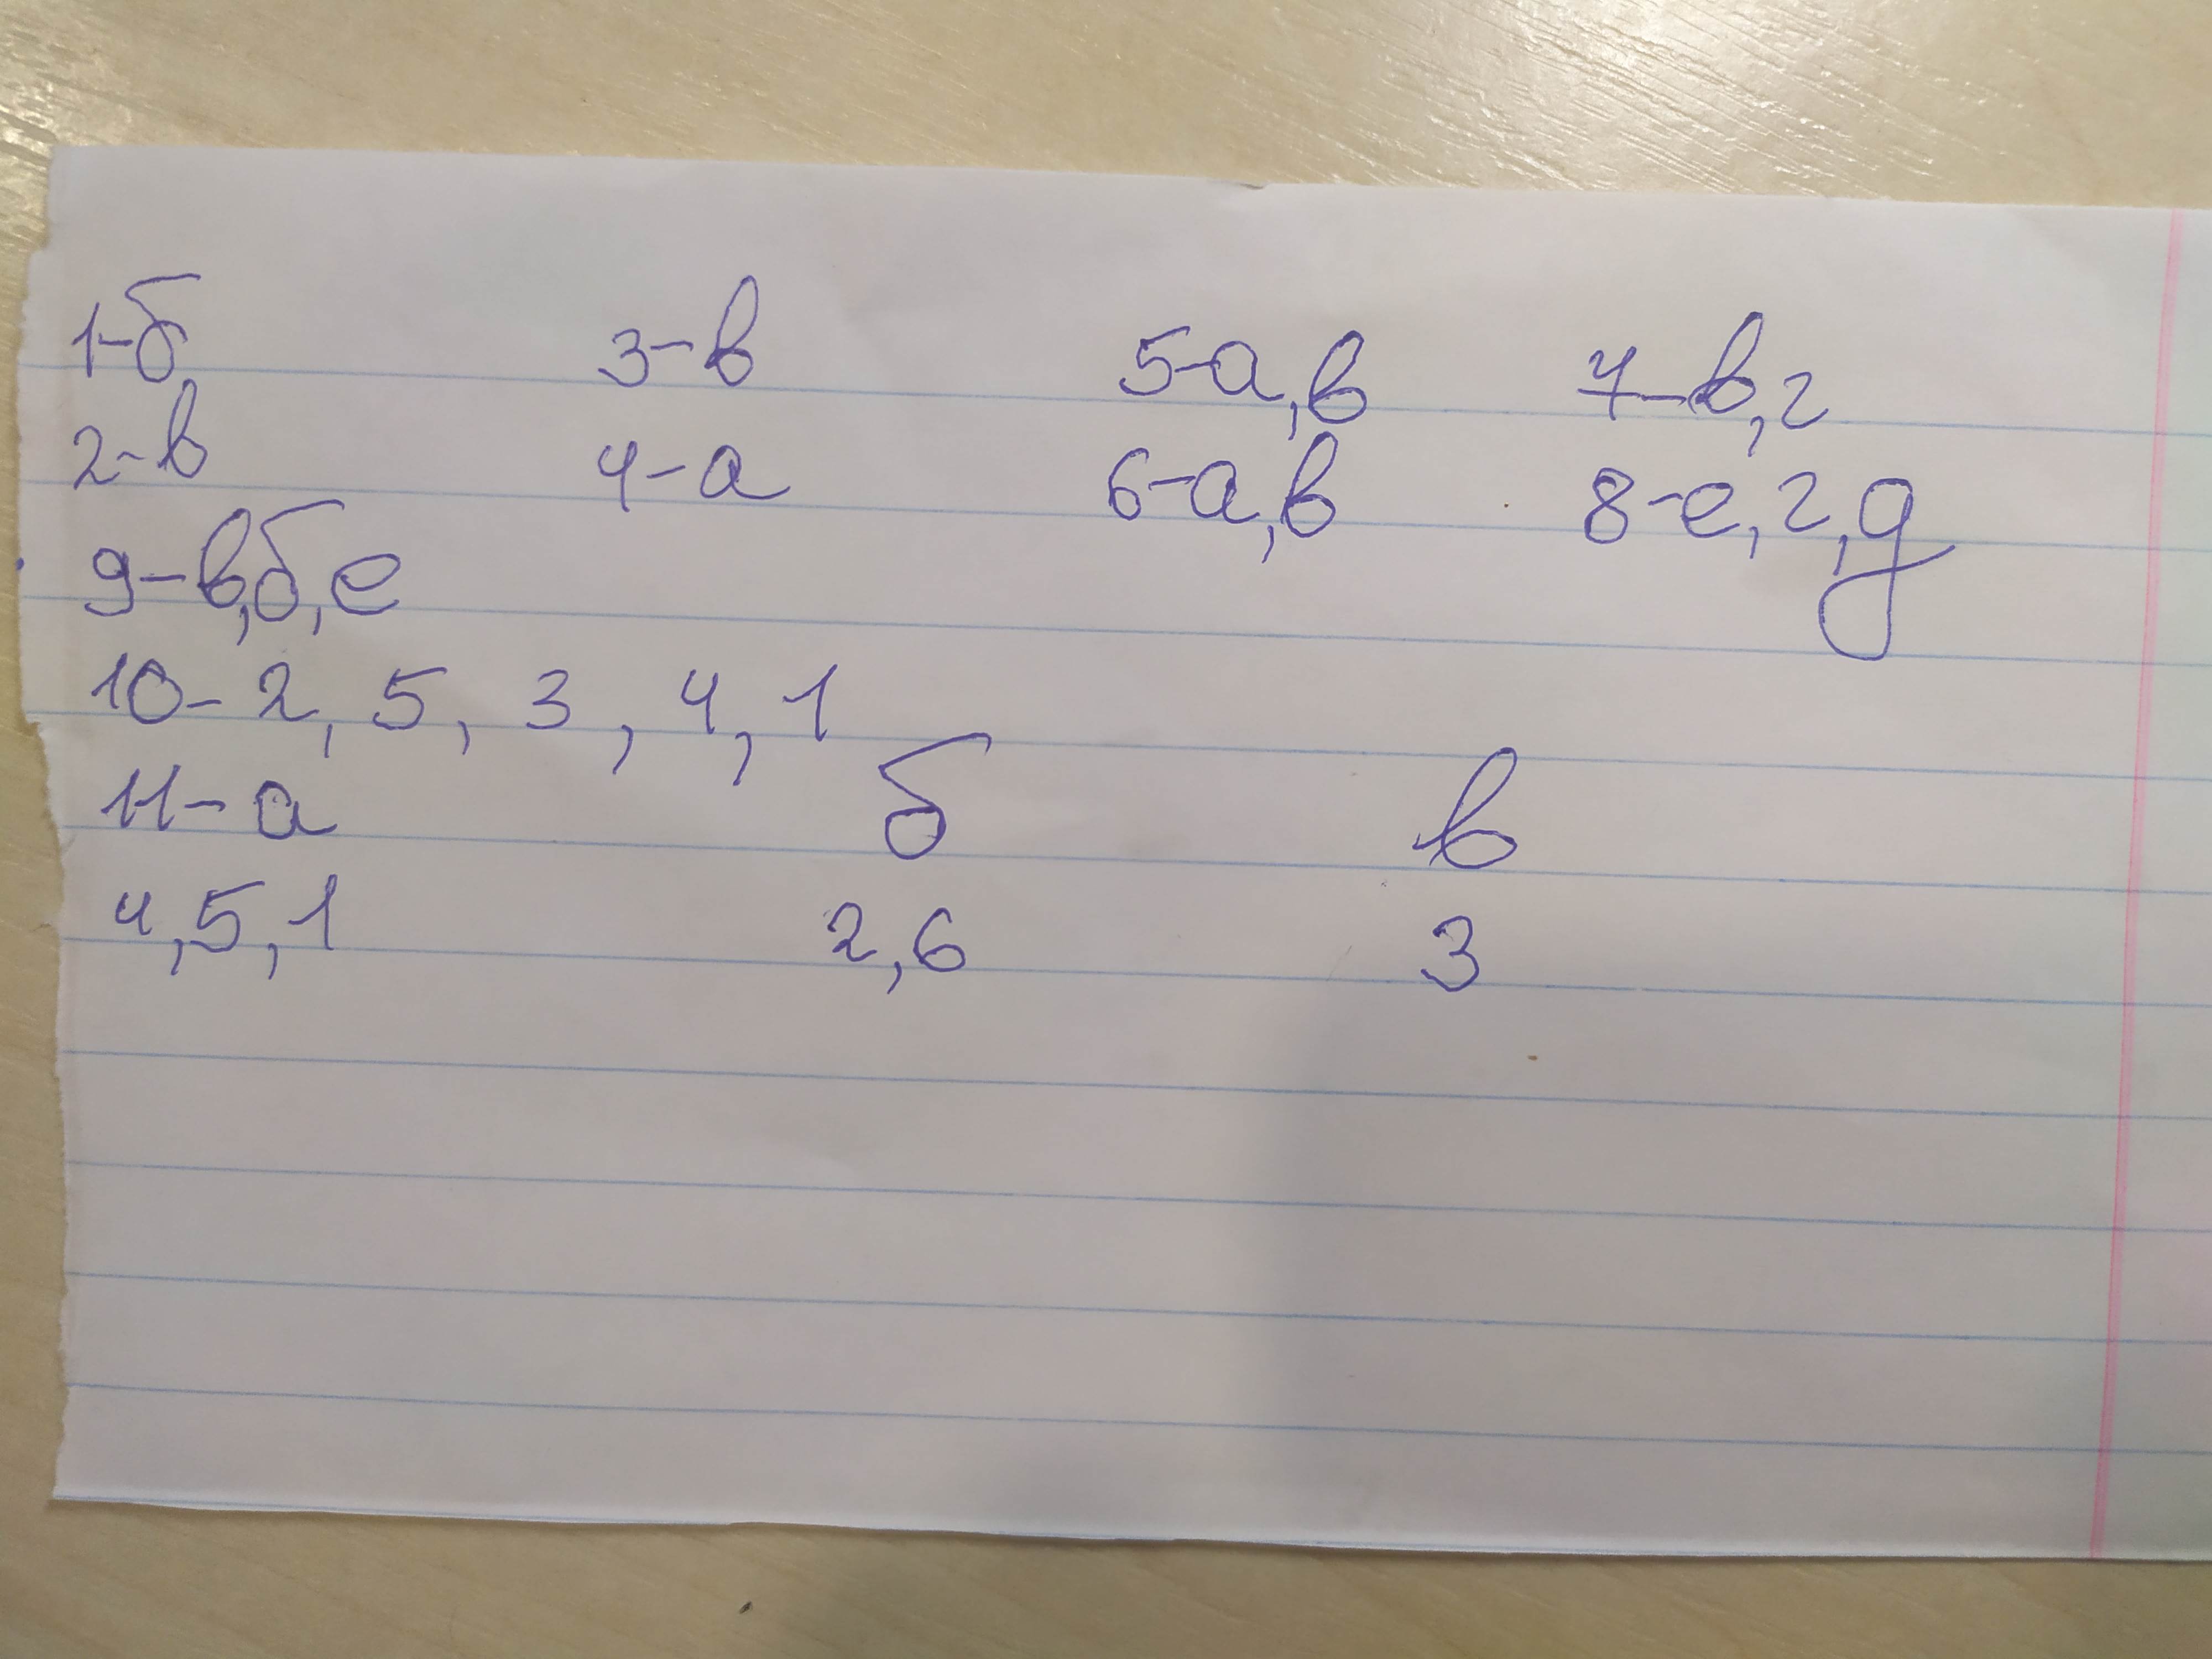 1-б 3-в 5-а,в 7-в,г
2-в 4-а 6-а,в 8-е,г,д
9-в,б,е
10- 2, 5, 3, 4, 1
11- а б в
4,5,1 2,6 3